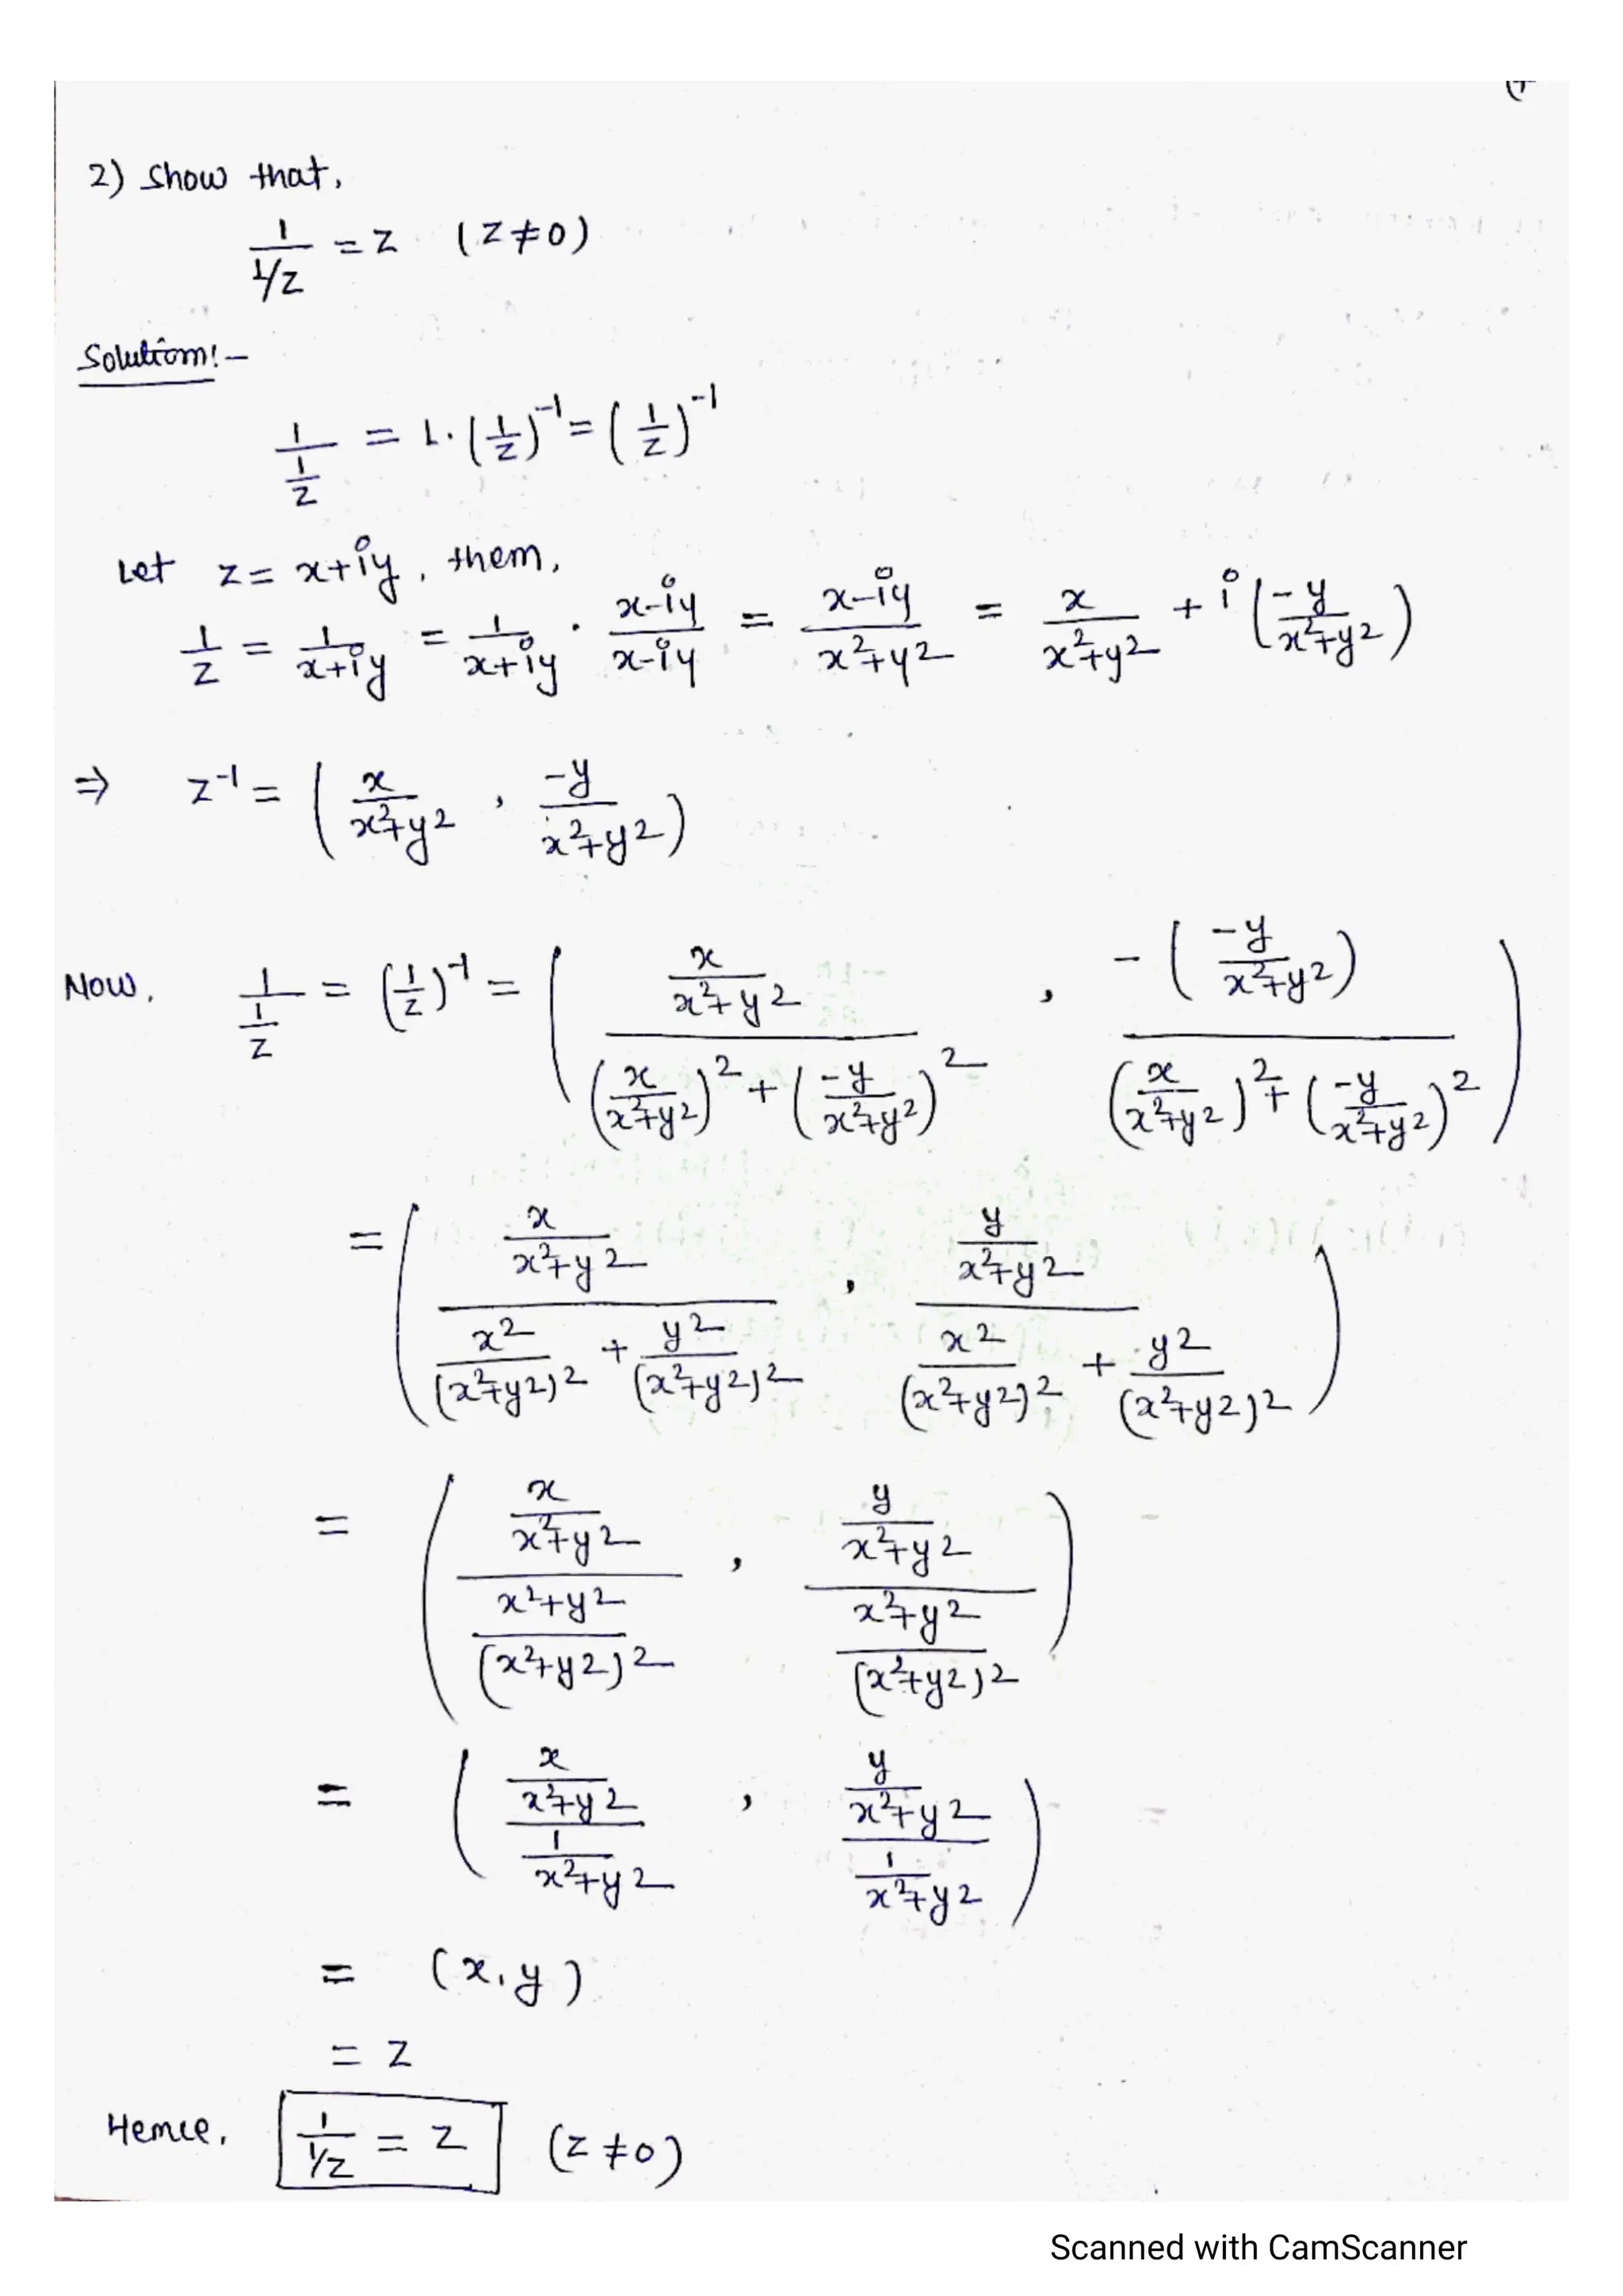 2) Show that,
1/(1/z) = z (z ≠ 0)
Solution:-
1/(1/z) = 1·(1/z)^-1 = (1/z)^-1
Let z = x+iy, then,
1/z = 1/(x+iy) = 1/(x+iy) · (x-iy)/(x-iy) = (x-iy)/(x²+y²) = x/(x²+y²) + i(-y/(x²+y²))
⇒ z^-1 = (x/(x²+y²), -y/(x²+y²))
Now, 1/(1/z) = (1/z)^-1 = ((x/(x²+y²))/((x/(x²+y²))² + (-y/(x²+y²))²), -(-y/(x²+y²))/((x/(x²+y²))² + (-y/(x²+y²))²))
= ((x/(x²+y²))/(x²/(x²+y²)² + y²/(x²+y²)²), (y/(x²+y²))/(x²/(x²+y²)² + y²/(x²+y²)²))
= ((x/(x²+y²))/((x²+y²)/(x²+y²)²), (y/(x²+y²))/((x²+y²)/(x²+y²)²))
= ((x/(x²+y²))/(1/(x²+y²)), (y/(x²+y²))/(1/(x²+y²)))
= (x, y)
= z
Hence, 1/(1/z) = z (z ≠ 0)
Scanned with CamScanner